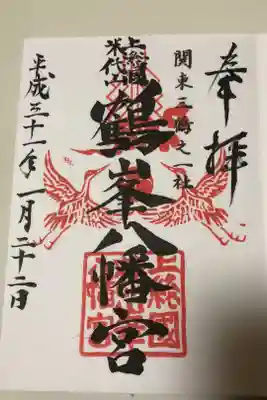 奉拝
関東三鶴之一社
上総国
米代山
鶴峯八幡宮
平成三十一年一月二十二日